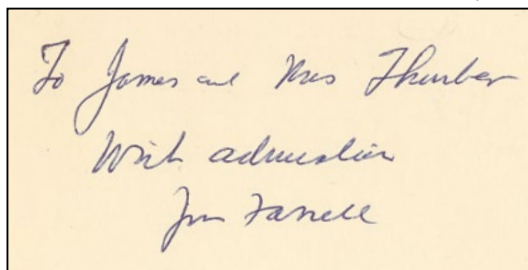 To James and Mrs Thurber
With admiration
Jim Farrell